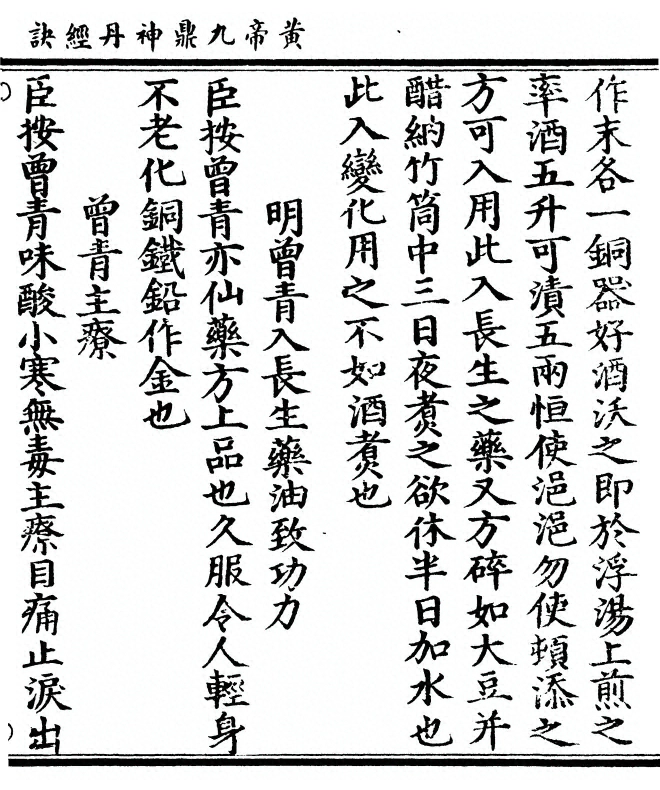 黃帝九鼎神丹經訣
作末各一銅器好酒沃之即於浮湯上煎之
率酒五升可漬五兩恒使浥浥勿使頓添之
方可入用此入長生之藥又方碎如大豆并
醋納竹筒中三日夜煑之欲休半日加水也
此入變化用之不如酒煑也
明曾青入長生藥油致功力
臣按曾青亦仙藥方上品也久服令人輕身
不老化銅鐵鉛作金也
曾青主療
臣按曾青味酸小寒無毒主療目痛止淚出